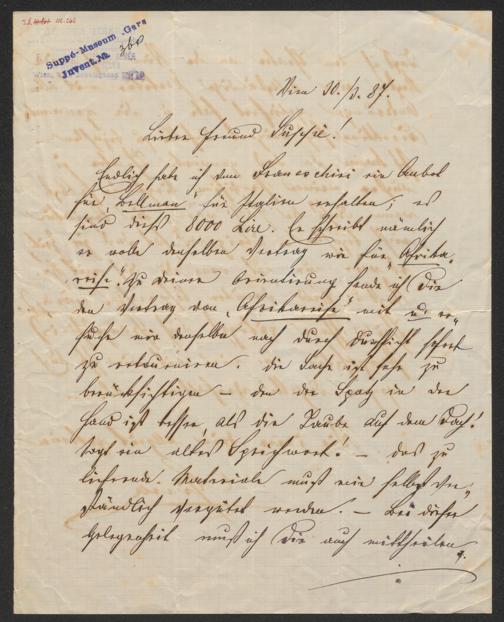 Suppé-Museum Gars
Invent. Nr. 360
Wien 30./3. 87.
Lieber Freund Suppé!
Endlich habe ich von Francochini ein Anbot
für „Bellman" für Italien erhalten, es
sind dieß 8000 Lire. Er schreibt nämlich
er wolle denselben Vertrag wie für „Afrika-
reise". Zu deiner Orientirung sende ich Dir
den Vertrag von „Afrikareise" mit u. er-
suche mir denselben nach durch Durchsicht sofort
zu retourniren. Die Sache ist sehr zu
berücksichtigen – denn der Spatz in der
Hand ist besser, als die Taube auf dem Dach!
sagt ein altes Sprichwort! – das zu
liefernde Materiale muß wie selbstver-
ständlich vergütet werden. – Bei dieser
Gelegenheit muß ich Dir auch mittheilen